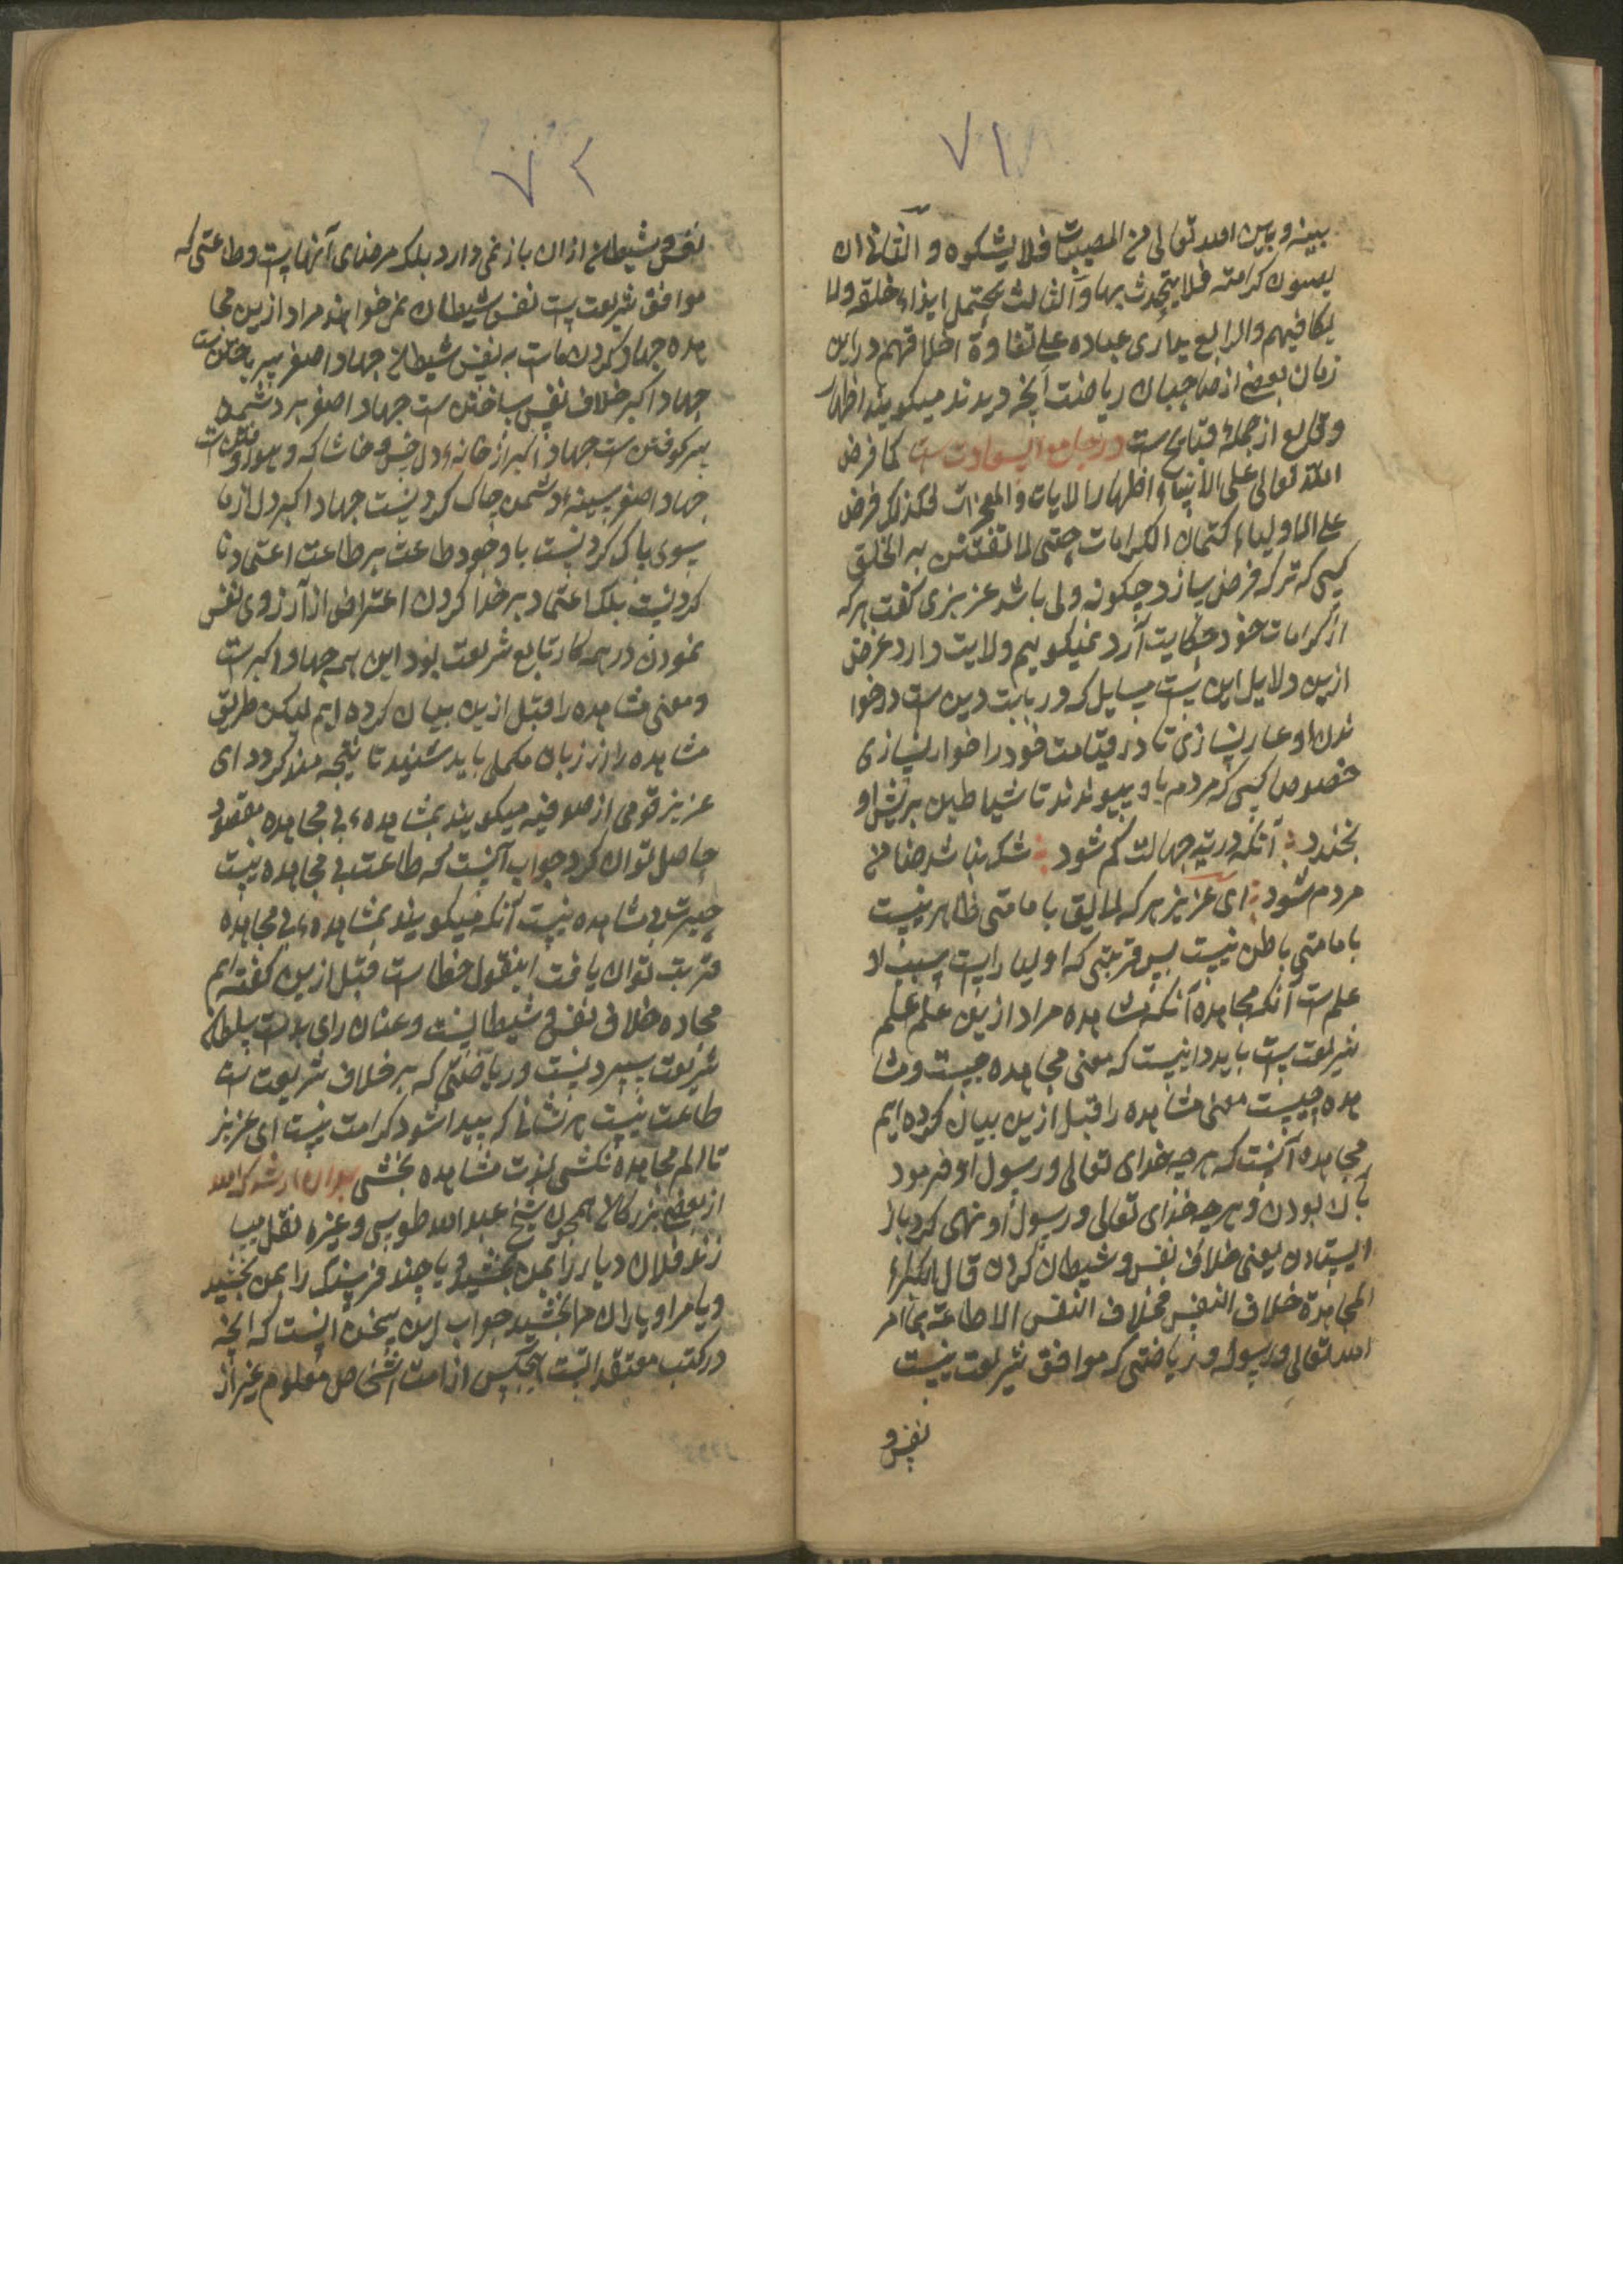 ٧١
بینه و بین الله تعالی من المصیبات فلا یشکوه و الثانی ان
یصون کرامته فلا یتحدث بها و الثالث یحتمل ایذاء خلقه ولا
یکافیهم والرابع یداری عباده علی تفاوة اخلاقهم در این
زمان بعضی از صاحبان ریاضت آنچه دیدند میکویند اظهار
وقایع از جمله قبایح ست در رجال مع السعادت ست کما فرض
الله تعالی علی الانبیاء اظهار الایات والمعجزات فکذلک فرض
علی الاولیاء کتمان الکرامات حتی لا تفتتن به الخلق
کسی که ترک فرض سازد چکونه ولی باشد عزیزی کفت هرکه
از کرامات خود حکایت آرد نمیکویم ولایت دارد غرض
ازین دلایل این ست مسایل که در بابت دین ست در خوا
ندن او عار نسازی تا در قیامت خود را خوار نسازی
خصوصا کسی که مردم باو پیوندند تا شیاطین بریش او
بخندد آنکه در تیه جهالت کم شود شک نباشد ضامن
مردم شود ای عزیز هر که لایق بامامتی ظاهر نیست
بامامتی باطن نیست پس قربتی که اولیا راست بسبب او
علم ست آنکه مجاهده آنکه مشاهده مراد ازین علم علم
شریعت ست باید دانیست که معنی مجاهده چیست و مشا
هده چیست معنی مشاهده را قبل ازین بیان کرده ایم
مجاهده آنست که هرچه خدای تعالی و رسول او فرمود
بآن بودن و هرچه خدای تعالی و رسول او نهی کرد باز
ایستادن یعنی خلاف نفس و شیطان کردن قال الکبراء
المجاهدة خلاف النفس مخلاف النفس الاطاعة بما امر
الله تعالی و رسوله و ریاضتی که موافق شریعت نیست
نفس و
٧٢
نفس و شیطان از ان باز نمی دارد بلکه مرضای آنهاست و طاعتی که
موافق شریعت ست نفس و شیطان نمی خواهند مراد ازین مجا
هده جهاد کردن ست به نفس و شیطان جهاد اصغر سر باختن ست
جهاد اکبر خلاف نفس ساختن ست جهاد اصغر بر دشمن
سر کوفتن ست جهاد اکبر از خانهٔ دل خس و خاشاک و هوا روفتن ست
جهاد اصغر سینهٔ دشمن چاک کردنیست جهاد اکبر دل از ما
سوی پاک کردنست با وجود طاعت بر طاعت اعتماد نا
کردنیست بلکه اعتماد بر خدا کردن اعتراض از آرزوی نفس
نمودن در همه کار تابع شریعت بود این همه جهاد اکبر ست
و معنی مشاهده را قبل ازین بیان کرده ایم لیکن طریق
مشاهده را از زبان مکملی باید شنید تا نتیجه مند کردد ای
عزیز قومی از صوفیه میکویند بمشاهدهٔ بی مجاهده مقصود
حاصل توان کرد جواب آنست که طاعت بی مجاهده نیست
حیرت بی مشاهده نیست آنکه میکویند بمشاهدهٔ بی مجاهده
قربت توان یافت اینقول خطاست قبل ازین کفته ایم
مجاده خلاف نفس و شیطانیست و عنان رای بدست سلطان
شریعت سپردنیست و ریاضتی که بر خلاف شریعت ست
طاعت نیست هر نشانی که پیدا شود کرامت نیست ای عزیز
تا الم مجاهده نکشی لذت مشاهده نچشی بدان ارشدک الله
از بعضی بزرکان همچون شیخ عبد الله طوسی و غیره نقل میـ
زنند فلان دیار را بمن بخشید و یا چند فرسنک را بمن بخشید
و یا مرا و یاران مرا بخشید جواب این سخن آنست که آنچه
در کتب معتقد است هیچکس از امت اشخاص معلوم غیر از